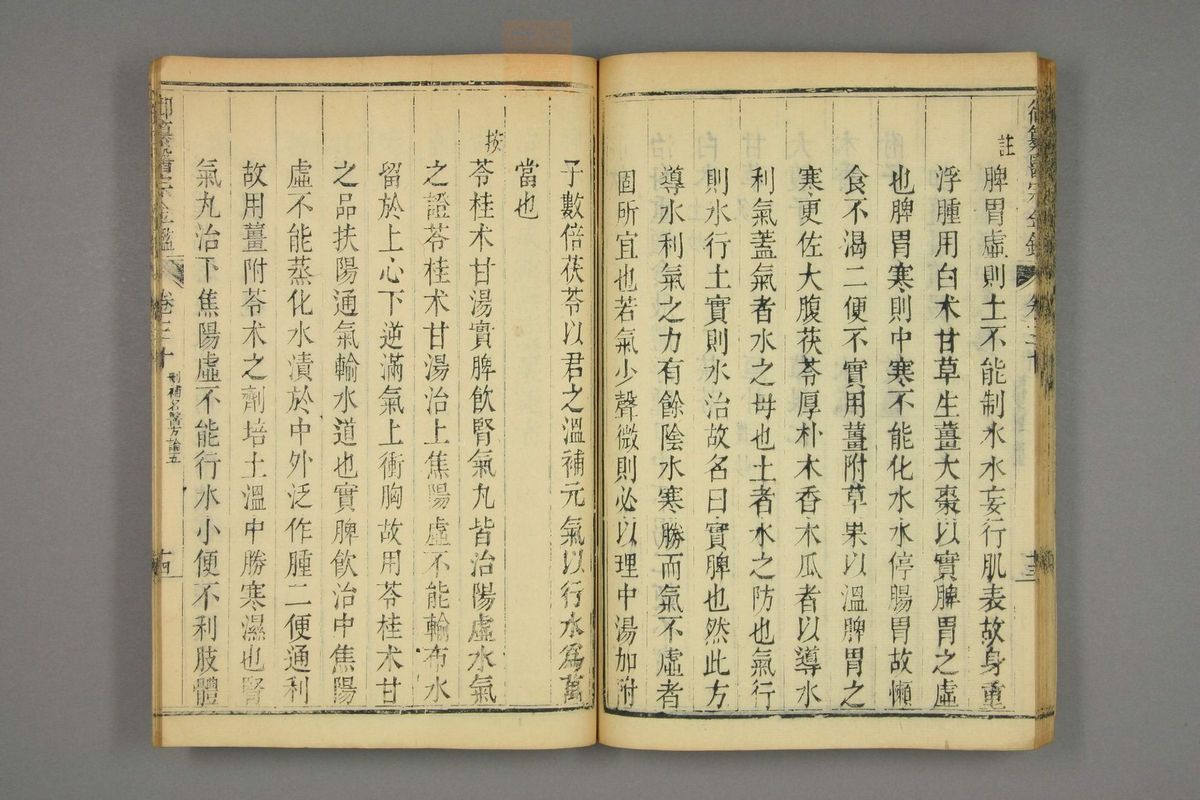 御纂醫宗金鑑
卷三十
十三
註
脾胃虛則土不能制水水妄行肌表故身重
浮腫用白术甘草生薑大棗以實脾胃之虛
也脾胃寒則中寒不能化水水停腸胃故懶
食不渴二便不實用薑附草果以溫脾胃之
寒更佐大腹茯苓厚朴木香木瓜者以導水
利氣蓋氣者水之母也土者水之防也氣行
則水行土實則水治故名曰實脾也然此方
導水利氣之力有餘陰水寒勝而氣不虛者
固所宜也若氣少聲微則必以理中湯加附
子數倍茯苓以君之溫補元氣以行水爲萬
當也
按
苓桂术甘湯實脾飲腎氣丸皆治陽虛水氣
之證苓桂术甘湯治上焦陽虛不能輸布水
留於上心下逆滿氣上衝胸故用苓桂术甘
之品扶陽通氣輸水道也實脾飲治中焦陽
虛不能蒸化水漬於中外泛作腫二便通利
故用薑附苓术之劑培土溫中勝寒濕也腎
氣丸治下焦陽虛不能行水小便不利肢體
御纂醫宗金鑑
卷三十
刪補名醫方論五
十四